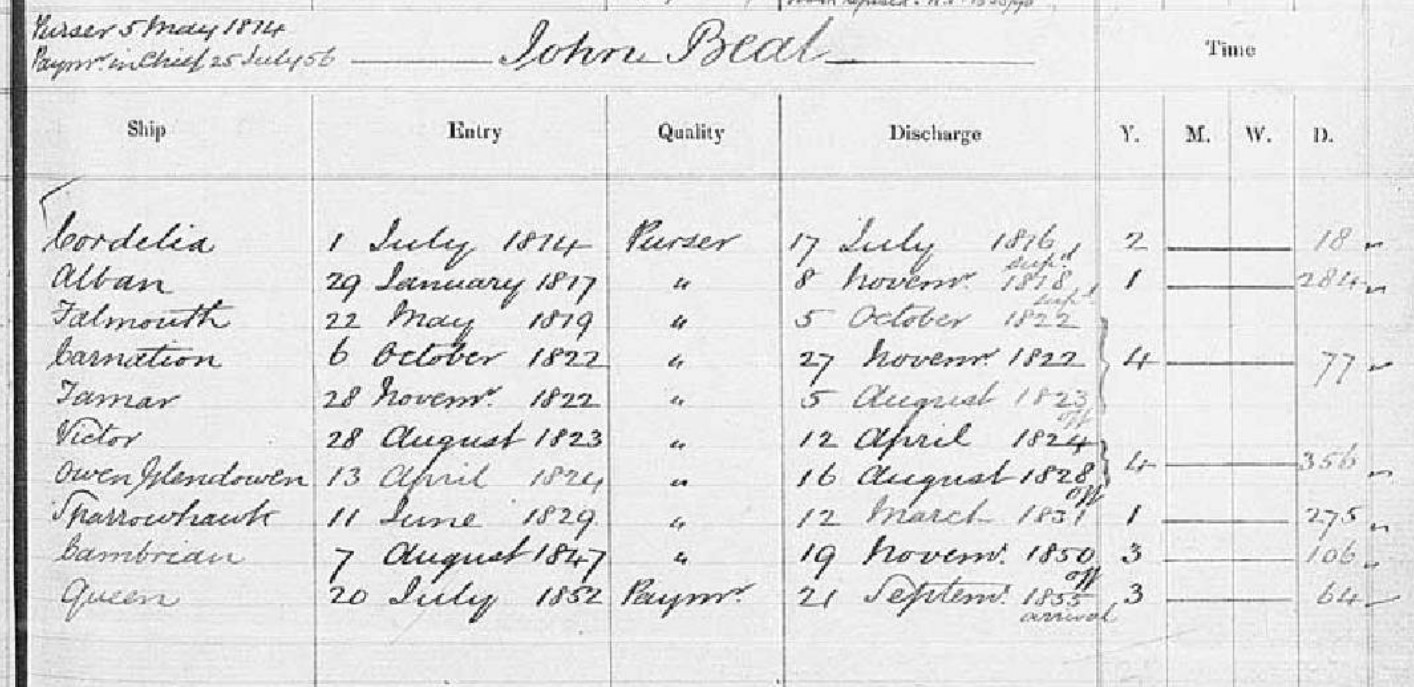 Purser 5 May 1814
Paymr. in Chief 25 July 56
John Beal
Time
Ship Entry Quality Discharge Y. M. W. D.
Cordelia 1 July 1814 Purser 17 July 1816 2 18 "
sup'd
Alban 29 January 1817 " 8 Novemr. 1818 1 284 "
sup'd
Falmouth 22 May 1819 " 5 October 1822
Carnation 6 October 1822 " 27 Novemr. 1822 4 77 "
Tamar 28 Novemr. 1822 " 5 August 1823
off
Victor 28 August 1823 " 12 April 1824
Owen Glendowen 13 April 1824 " 16 August 1828 4 356 "
off
Sparrowhawk 11 June 1829 " 12 March 1831 1 275 "
Cambrian 7 August 1847 " 19 Novemr. 1850 3 106 "
off
Queen 20 July 1852 Paymr. 21 Septemr. 1855 3 64 "
arrival